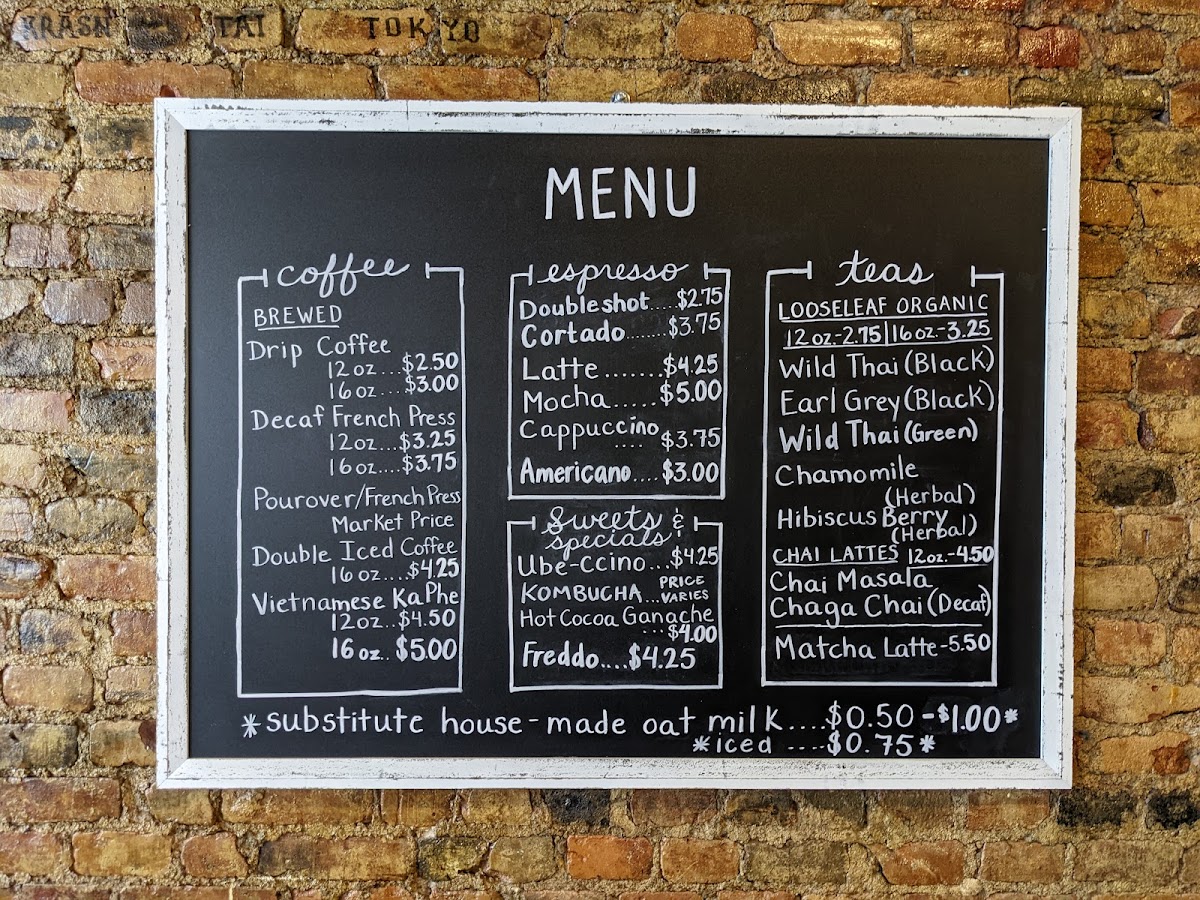 TAI TOKYO
MENU
coffee
BREWED
Drip Coffee
12 oz...$2.50
16 oz...$3.00
Decaf French Press
12 oz...$3.25
16 oz....$3.75
Pourover/French Press
Market Price
Double Iced Coffee
16 oz....$4.25
Vietnamese Ka Phe
12 oz..$4.50
16 oz..$5.00
espresso
Doubleshot....$2.75
Cortado........$3.75
Latte.......$4.25
Mocha.....$5.00
Cappuccino
....$3.75
Americano....$3.00
Sweets &
specials
Ube-ccino...$4.25
KOMBUCHA...PRICE
VARIES
Hot Cocoa Ganache
...$4.00
Freddo....$4.25
teas
LOOSELEAF ORGANIC
12 oz.-2.75|16 oz.-3.25
Wild Thai (Black)
Earl Grey (Black)
Wild Thai (Green)
Chamomile
(Herbal)
Hibiscus Berry
(Herbal)
CHAI LATTES 12oz.-4.50
Chai Masala
Chaga Chai (Decaf)
Matcha Latte-5.50
*substitute house-made oat milk....$0.50-$1.00*
*iced ....$0.75*